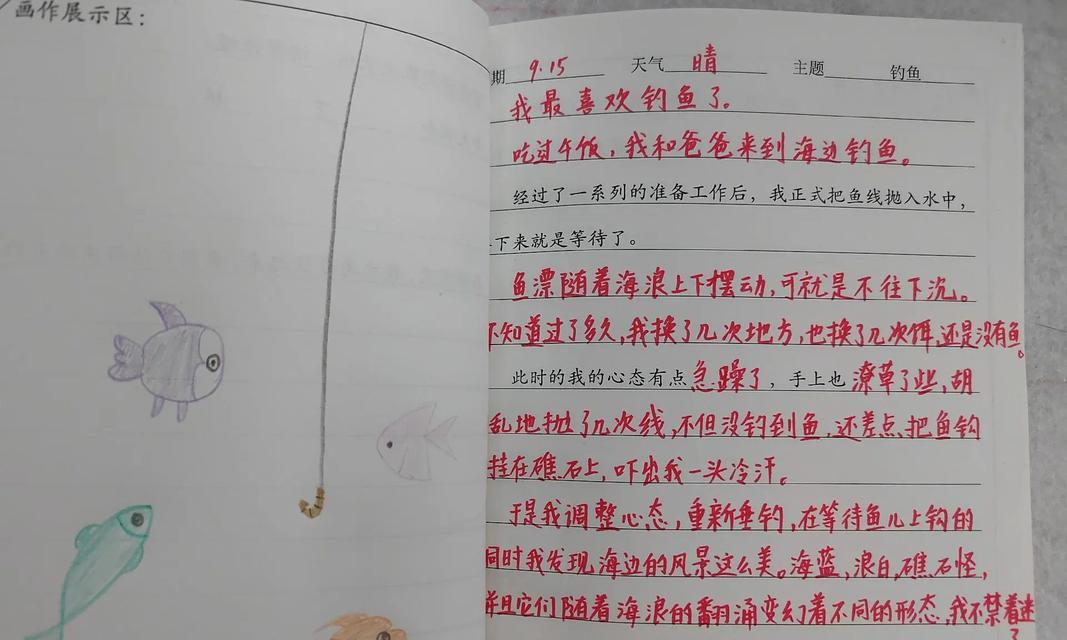 画作展示区:
期 9.15 天气 晴 主题 钓鱼
我最喜欢钓鱼了。
吃过午饭，我和爸爸来到海边钓鱼。
经过了一系列的准备工作后，我正式把鱼线抛入水中，
下来就是等待了。
鱼漂随着海浪上下摆动,可就是不往下沉。
不知道过了多久,我换了几次地方,也换了几次饵,还是没有鱼。
此时的我的心态有点急躁了，手上也潦草了些,胡
乱地抛了几次线,不但没钓到鱼,还差点把鱼钩
挂在礁石上,吓出我一头冷汗。
于是我调整心态，重新垂钓,在等待鱼儿上钩的
同时我发现海边的风景这么美。海蓝,浪白,礁石怪,
并且它们随着海浪的翻涌变幻着不同的形态,我不禁着迷
了